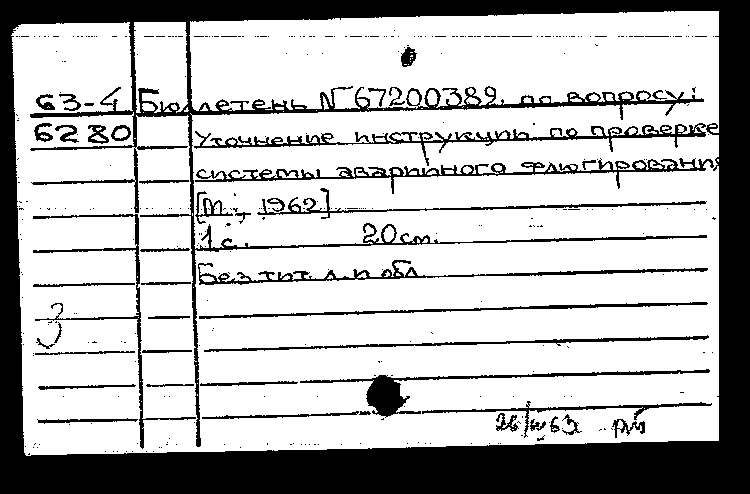 63-4 Бюллетень №67200389. по вопросу:
6280 Уточнение инструкции по проверке
системы аварийного флюгирования
[М., 1962]
1 с. 20 см.
Без тит. л. и обл.
3
26/IV 63